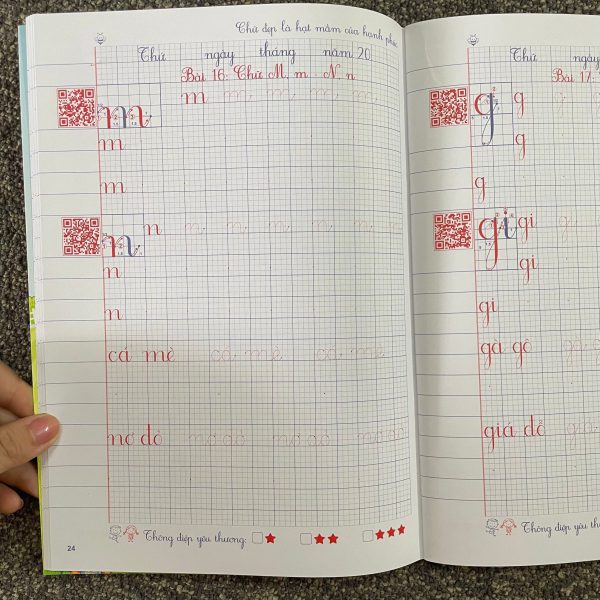 Chữ đẹp là hạt mầm của hạnh phúc
Thứ ngày tháng năm 20
Bài 16: Chữ M, m - N, n
m m m m m m
m
m
m
n n n n n n n
n
n
n
cá mè cá mè cá mè
nơ đỏ nơ đỏ nơ đỏ nơ đỏ
Thông điệp yêu thương:
24
Thứ ngày
Bài 17:
g g
g
g
gi gi
gi
gi
gà gô gà g
giá đỗ giá
Thông điệp yêu thương